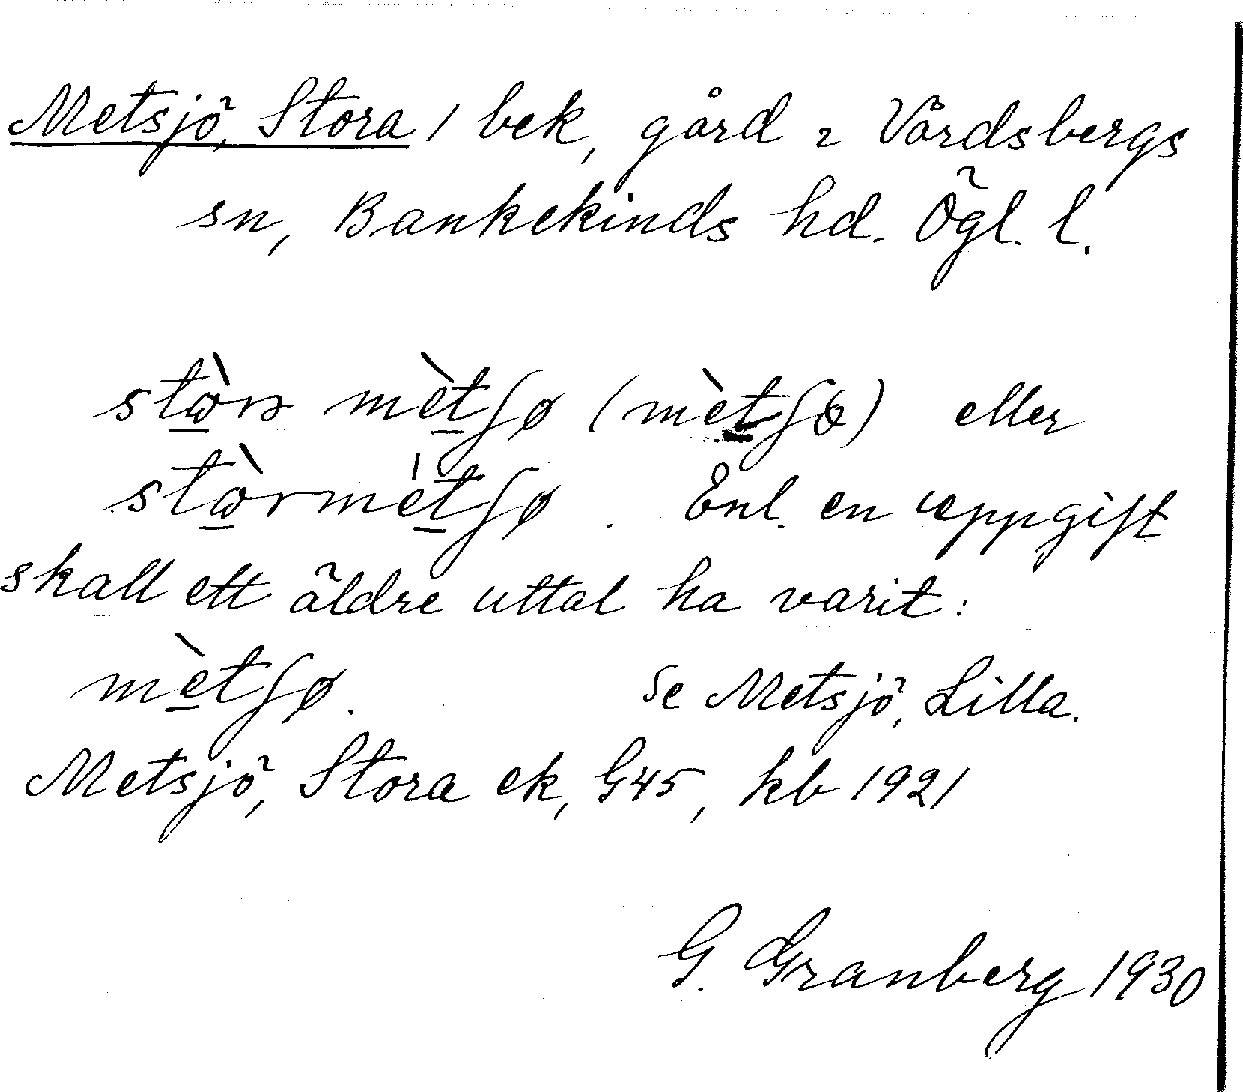 Metsjö, Stora / bek, gård i Vårdsbergs
sn, Bankekinds hd. Ögl. l.
stɷ̀rɐ mètʃø (mètʃɵ) eller
stɷ̀rmétʃø. Enl. en uppgift
skall ett äldre uttal ha varit:
mètʃø. Se Metsjö, Lilla.
Metsjö, Stora ek, G45, kb 1921
G. Granberg 1930